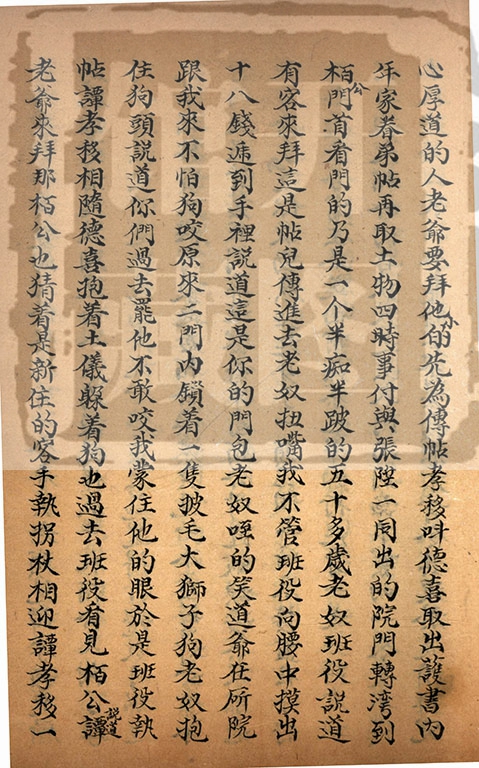 心厚道的人老爺要拜他小的先為傳帖孝移呌德喜取出護書內
年家眷弟帖再取土物四時事付與張陞一同出的院門轉灣到
栢公門首看門的乃是一个半痴半跛的五十多歲老奴班役說道
有客來拜這是帖兒傳進去老奴扭嘴我不管班役向腰中摸出
十八錢逓到手裡說道這是你的門包老奴咥的笑道爺在所院
跟我來不怕狗咬原來二門內鎖着一隻披毛大獅子狗老奴抱
住狗頭說道你們過去罷他不敢咬我蒙住他的眼於是班役執
帖譚孝移相隨德喜抱着土儀躲着狗也過去班役看見栢公說道譚
老爺來拜那栢公也猜着是新住的客手執拐杖相迎譚孝移一